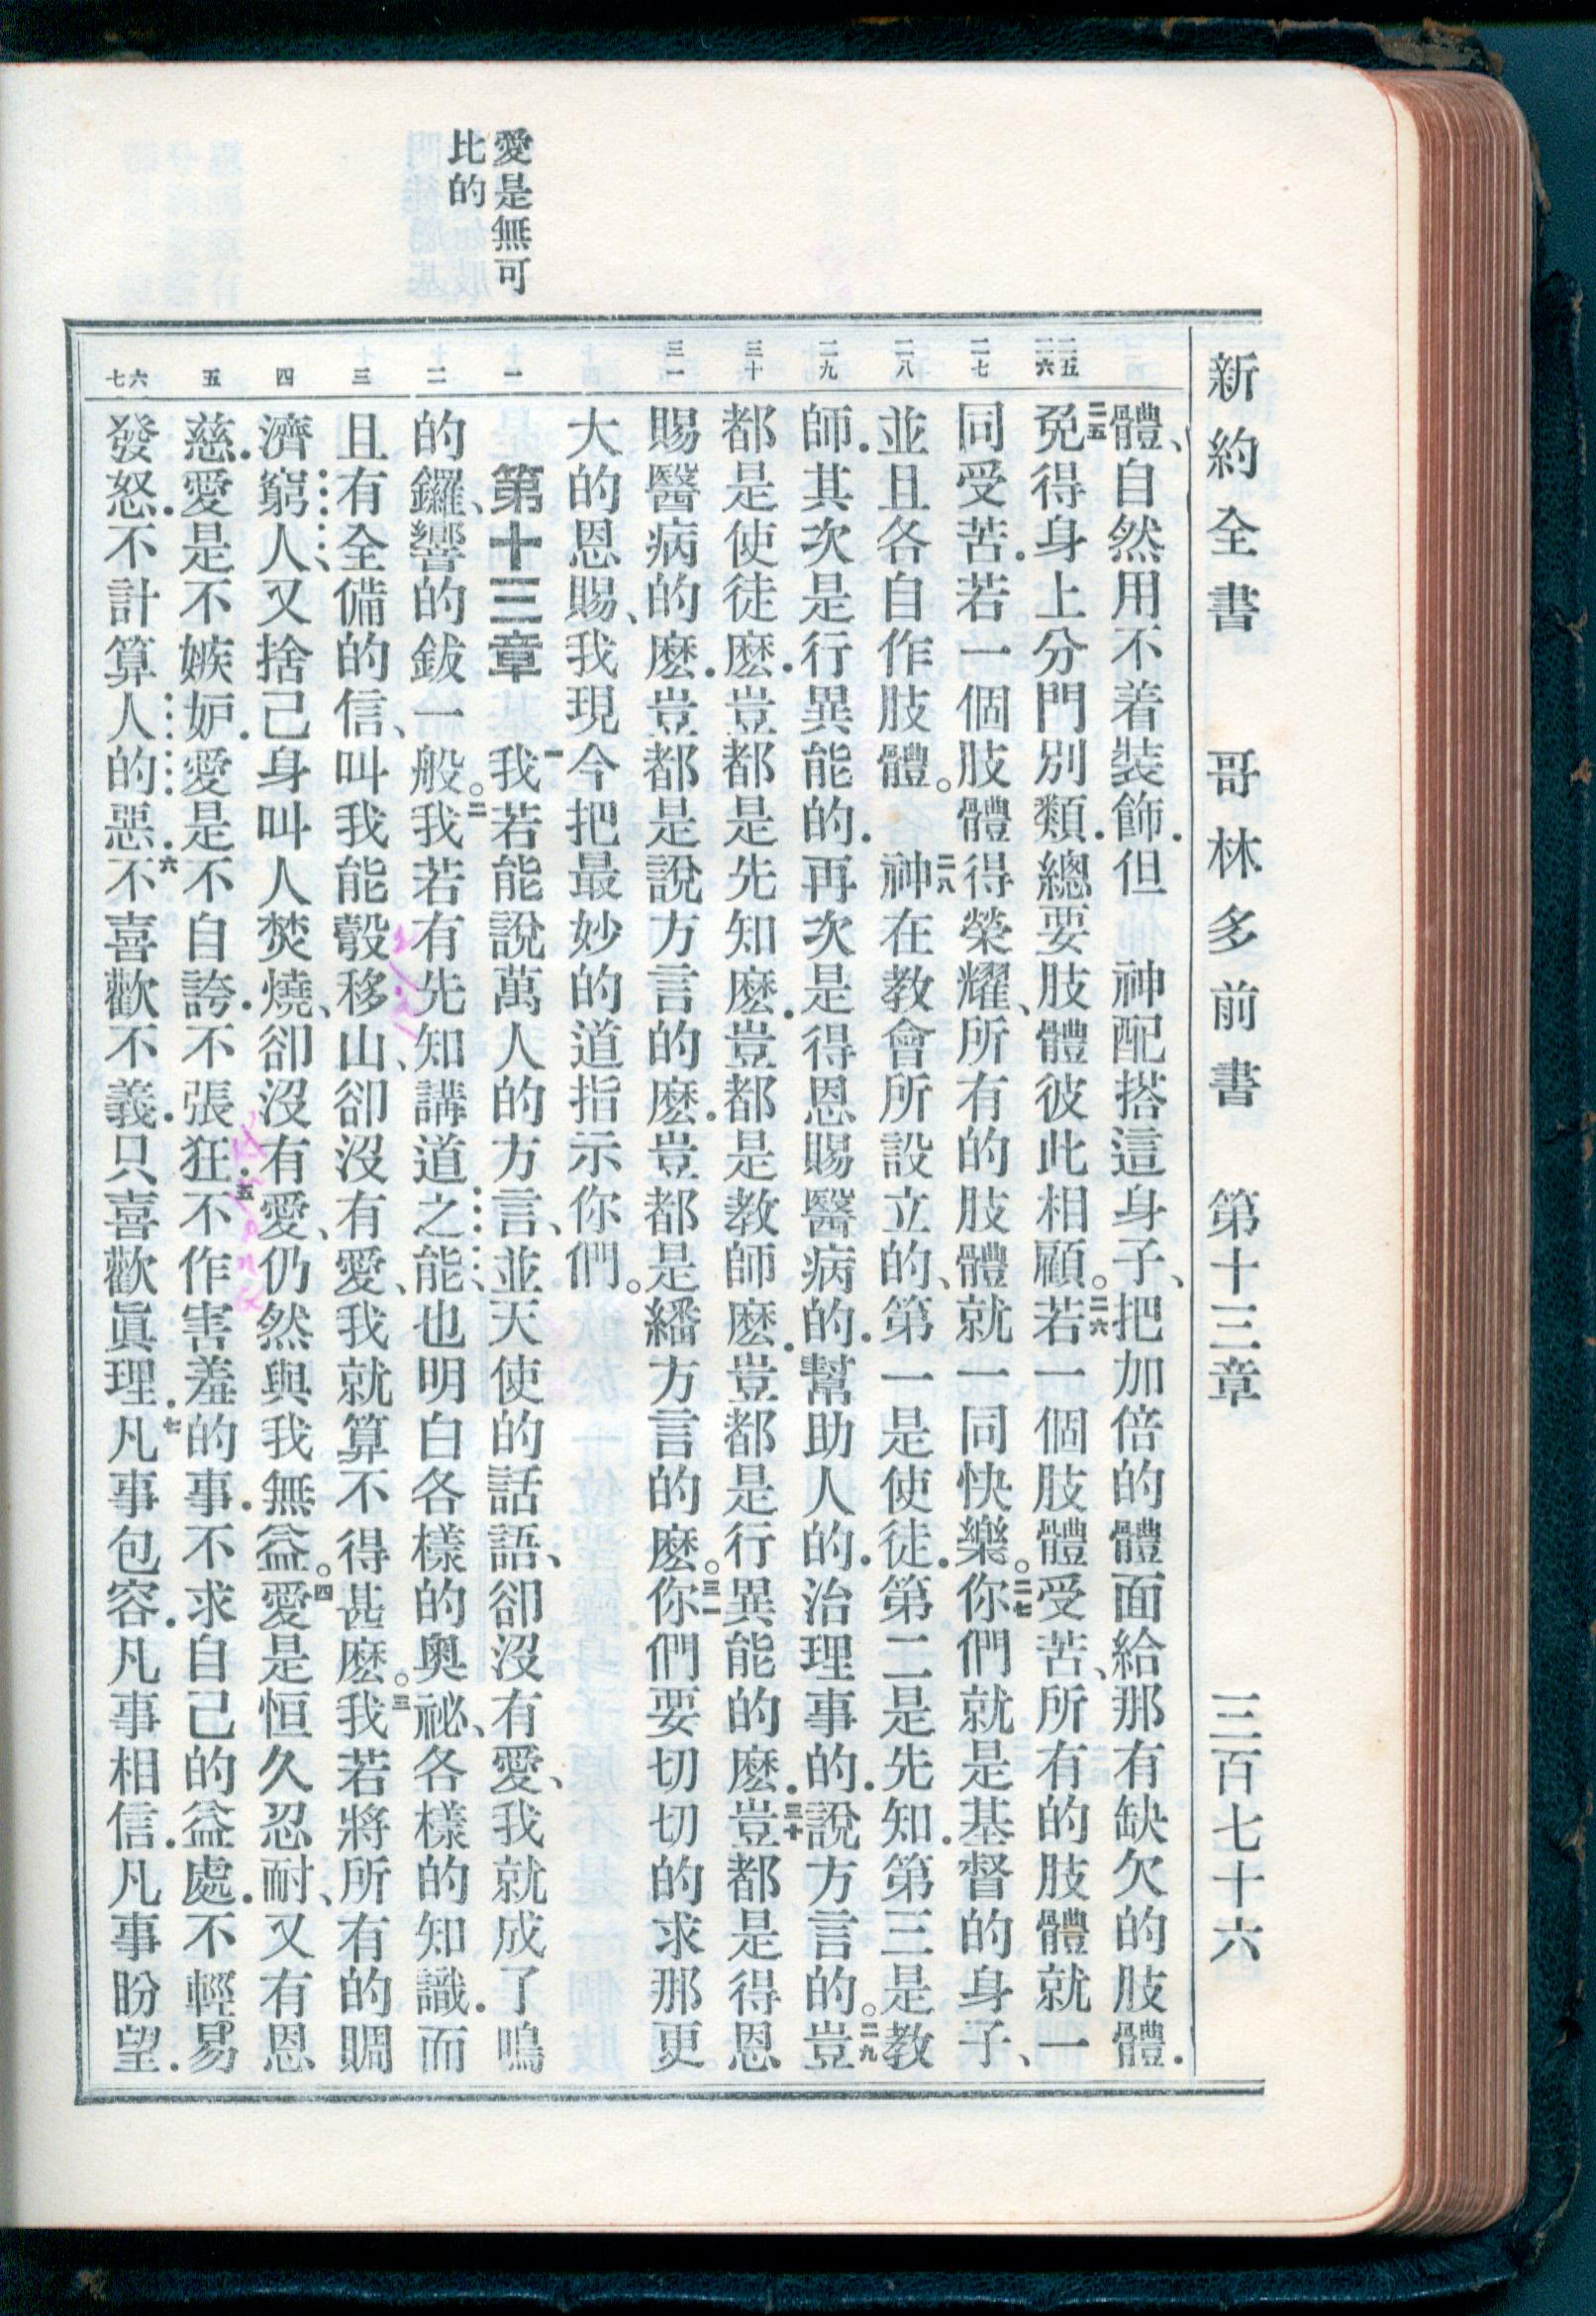 新約全書　哥林多前書　第十三章　三百七十六
愛是無可
比的
二五
二六
二七
二八
二九
三十
三一
一
二
三
四
五
六
七
體、自然用不着裝飾．但　神配搭這身子、把加倍的體面給那有缺欠的肢體．
二五免得身上分門別類．總要肢體彼此相顧。二六若一個肢體受苦、所有的肢體就一
同受苦．若一個肢體得榮耀、所有的肢體就一同快樂。二七你們就是基督的身子、
並且各自作肢體。二八神在教會所設立的、第一是使徒．第二是先知．第三是教
師．其次是行異能的．再次是得恩賜醫病的．幫助人的．治理事的．說方言的。二九豈
都是使徒麽．豈都是先知麽．豈都是教師麽．豈都是行異能的麽．三十豈都是得恩
賜醫病的麽．豈都是說方言的麽．豈都是繙方言的麽。三一你們要切切的求那更
大的恩賜、我現今把最妙的道指示你們。
第十三章　一我若能說萬人的方言、並天使的話語、卻沒有愛、我就成了鳴
的鑼、響的鈸一般。二我若有先知講道之能、也明白各樣的奧祕、各樣的知識．而
且有全備的信、叫我能彀移山、卻沒有愛、我就算不得甚麽。三我若將所有的賙
濟窮人、又捨己身叫人焚燒、卻沒有愛、仍然與我無益。四愛是恒久忍耐、又有恩
慈．愛是不嫉妒．愛是不自誇．不張狂．五不作害羞的事．不求自己的益處．不輕易
發怒．不計算人的惡．六不喜歡不義．只喜歡眞理．七凡事包容．凡事相信．凡事盼望．